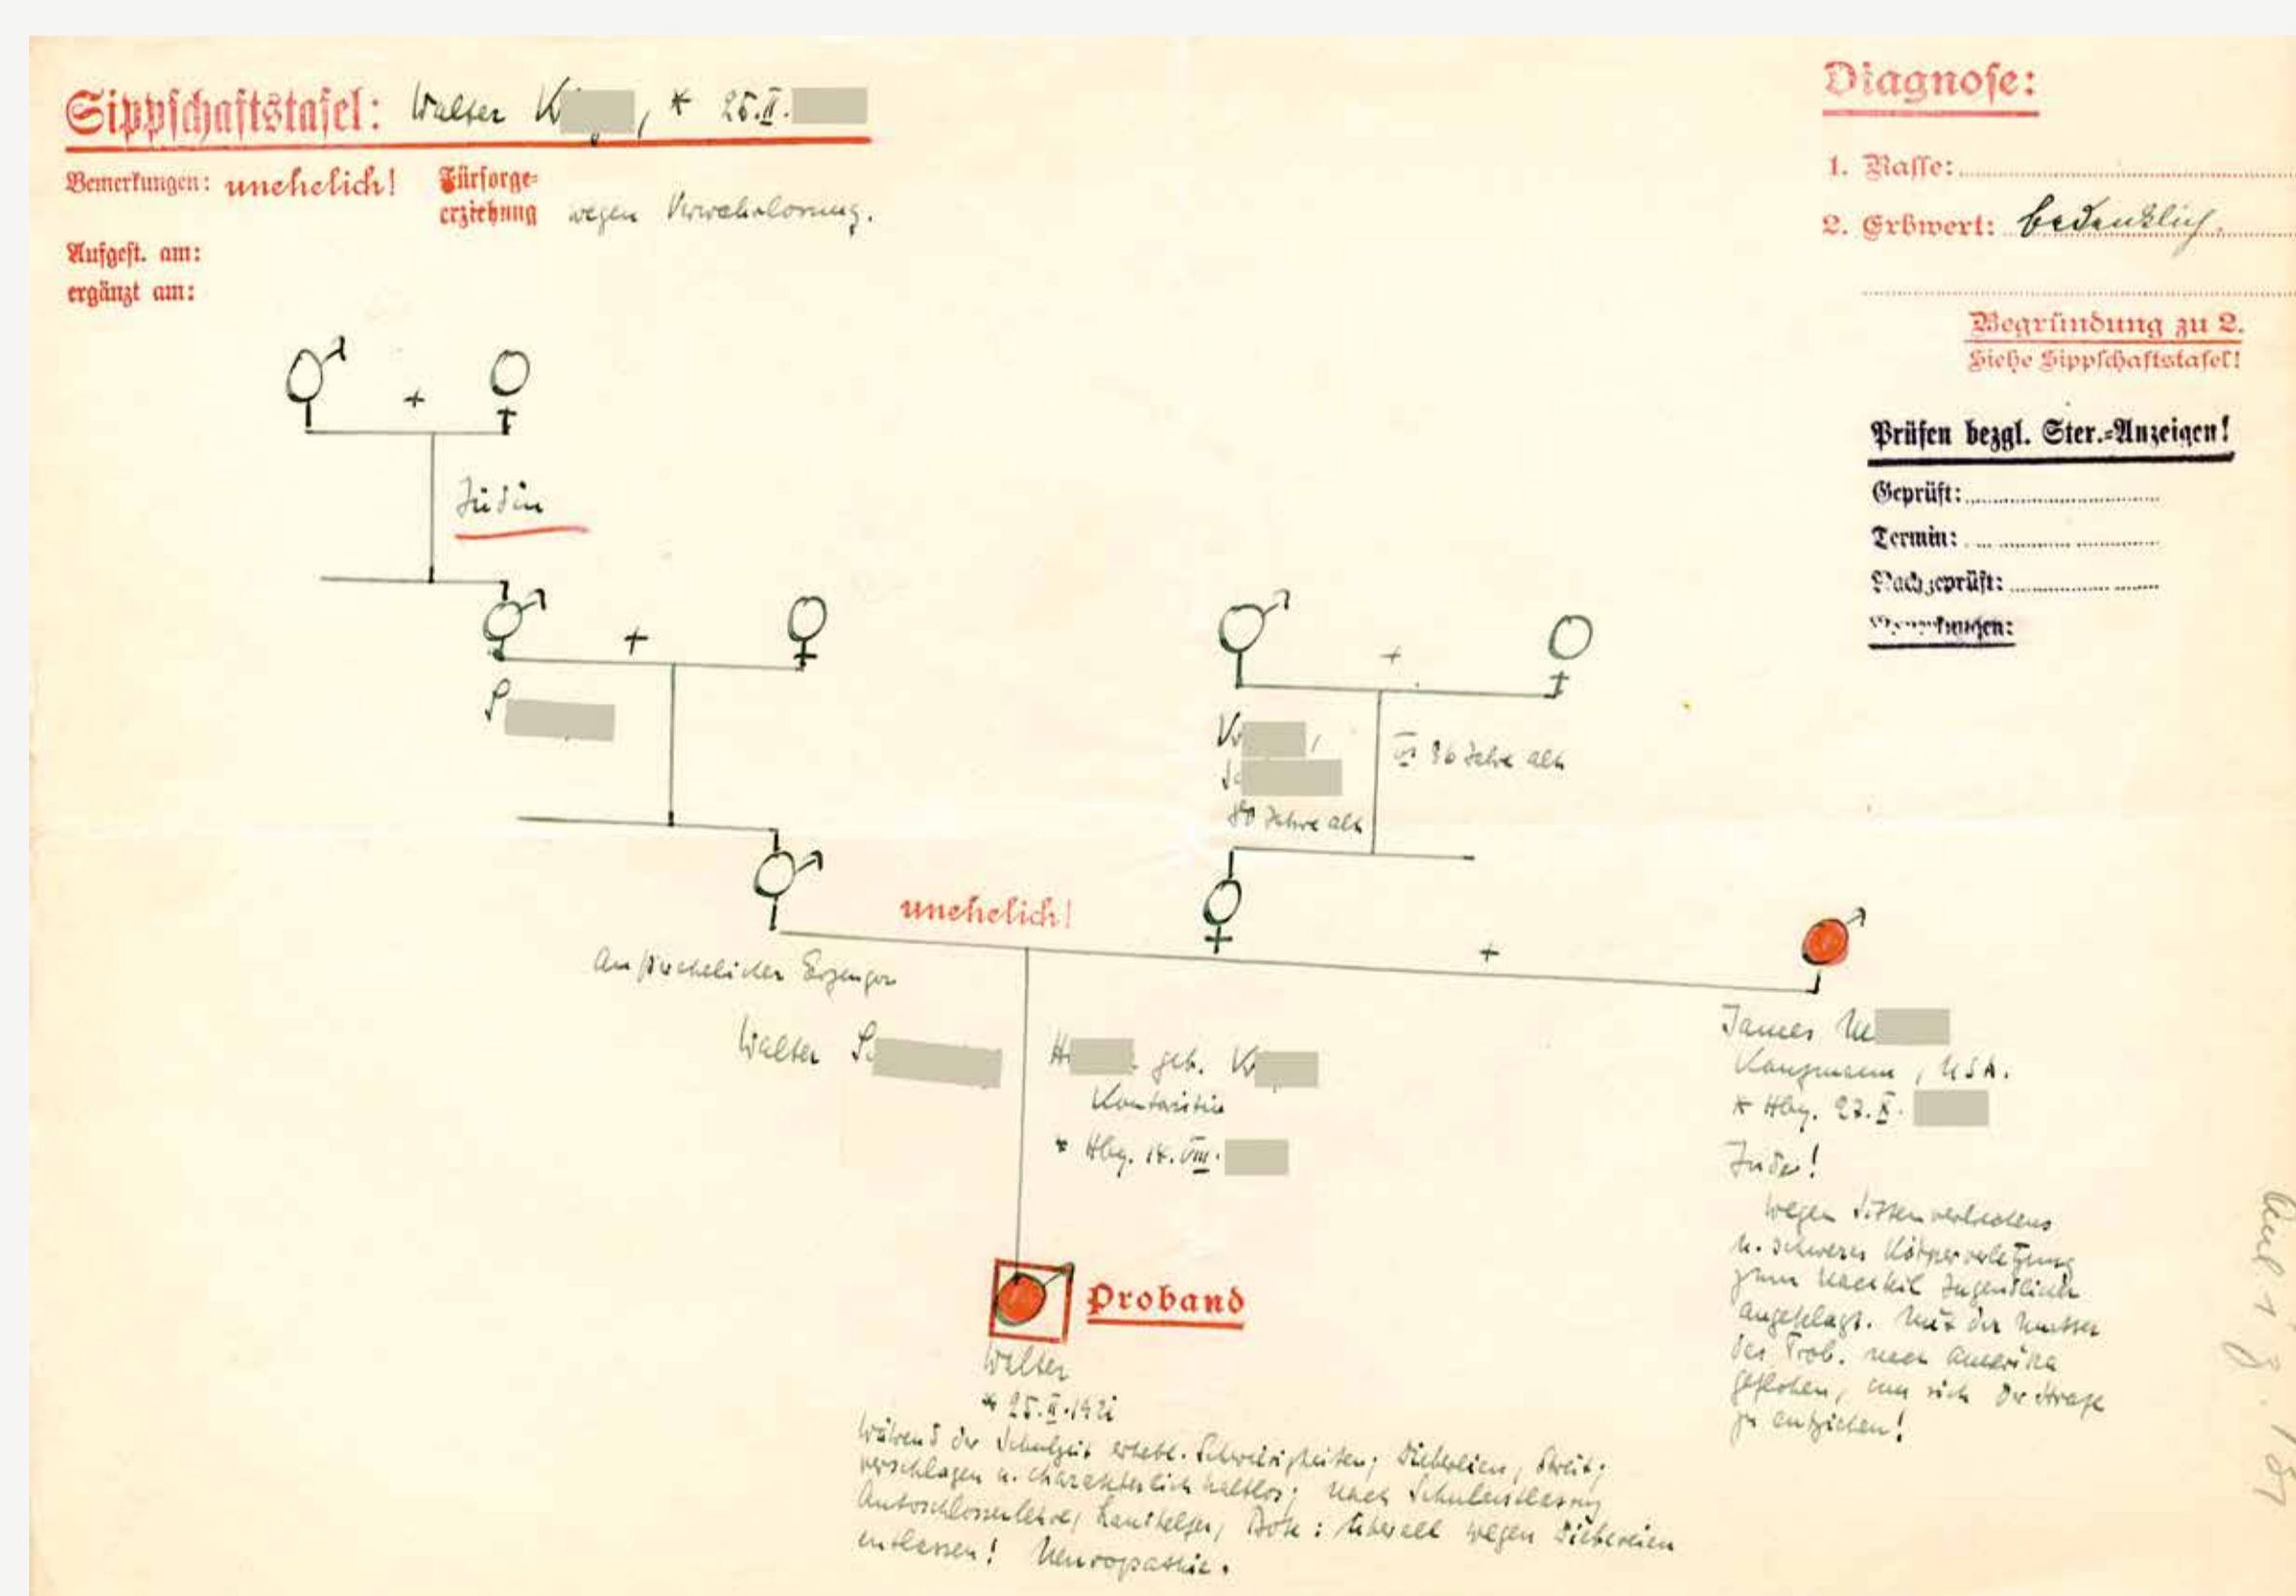 Sippschaftstafel: Walter K , * 25.II.
Bemerkungen: unehelich! Fürsorge-
erziehung wegen Verwahrlosung.
Aufgest. am:
ergänzt am:
Diagnose:
1. Rasse:
2. Erbwert: bedenklich.
Begründung zu 2.
Siehe Sippschaftstafel!
Prüfen bezgl. Ster.-Anzeigen!
Geprüft:
Termin:
Nachgeprüft:
Bemerkungen:
+
Jüdin
+
S
+
K ,
80 Jahre alt
36 Jahre alt
unehelich!
+
Erzeuger
Walter S
H geb. K
Kontoristin
* Hbg. 14.VIII.
James M
Kaufmann, USA.
* Hbg. 27.X.
Jude!
wegen Sittenverbrechens
u. schwerer Körperverletzung
zum Nachteil Jugendlicher
angeklagt. Mit der Mutter
des Prob. nach Amerika
geflohen, um sich der Strafe
zu entziehen!
Proband
Walter
* 25.II.1921
Während der Schulzeit erhebl. Schwierigkeiten; Diebereien, Streit;
verschlagen u. charakterlich haltlos; nach Schulentlassung
Autoschlosserlehre, Landhelfer, Bote: überall wegen Diebereien
entlassen! Neuropathie.